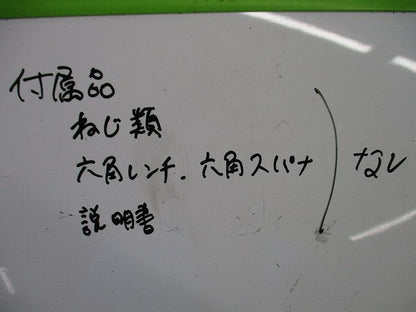 付属品
ねじ類
六角レンチ. 六角スパナ
説明書
なし